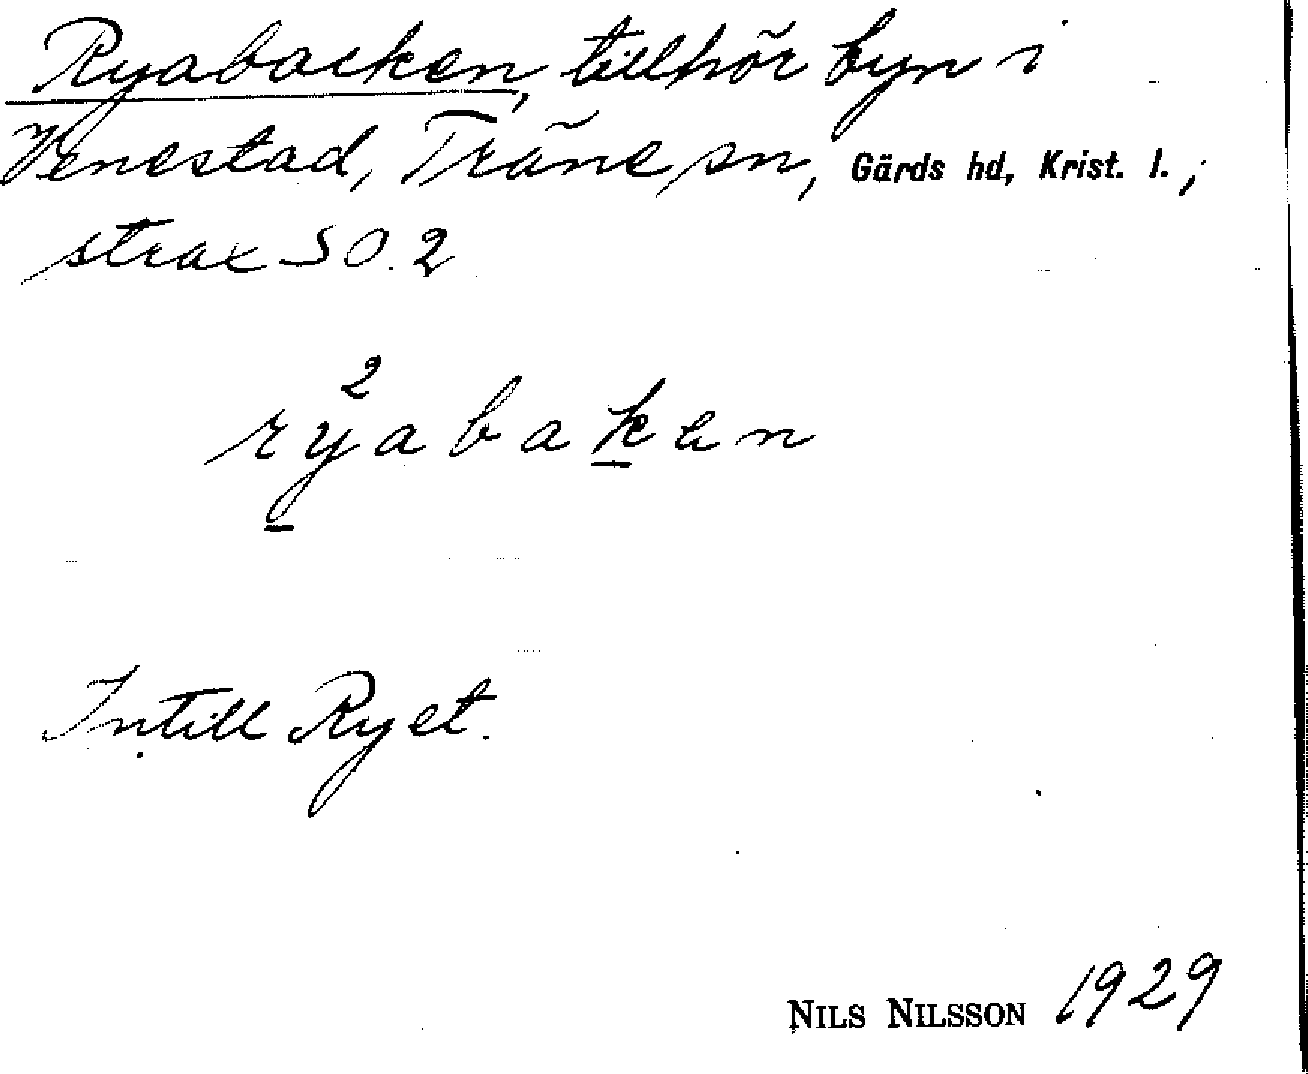 Ryabacken, tillhör byn i
Venestad, Träne sn, Gärds hd, Krist. l.;
strax SO. 2
2
ryabaken
Intill Ryet.
NILS NILSSON 1929